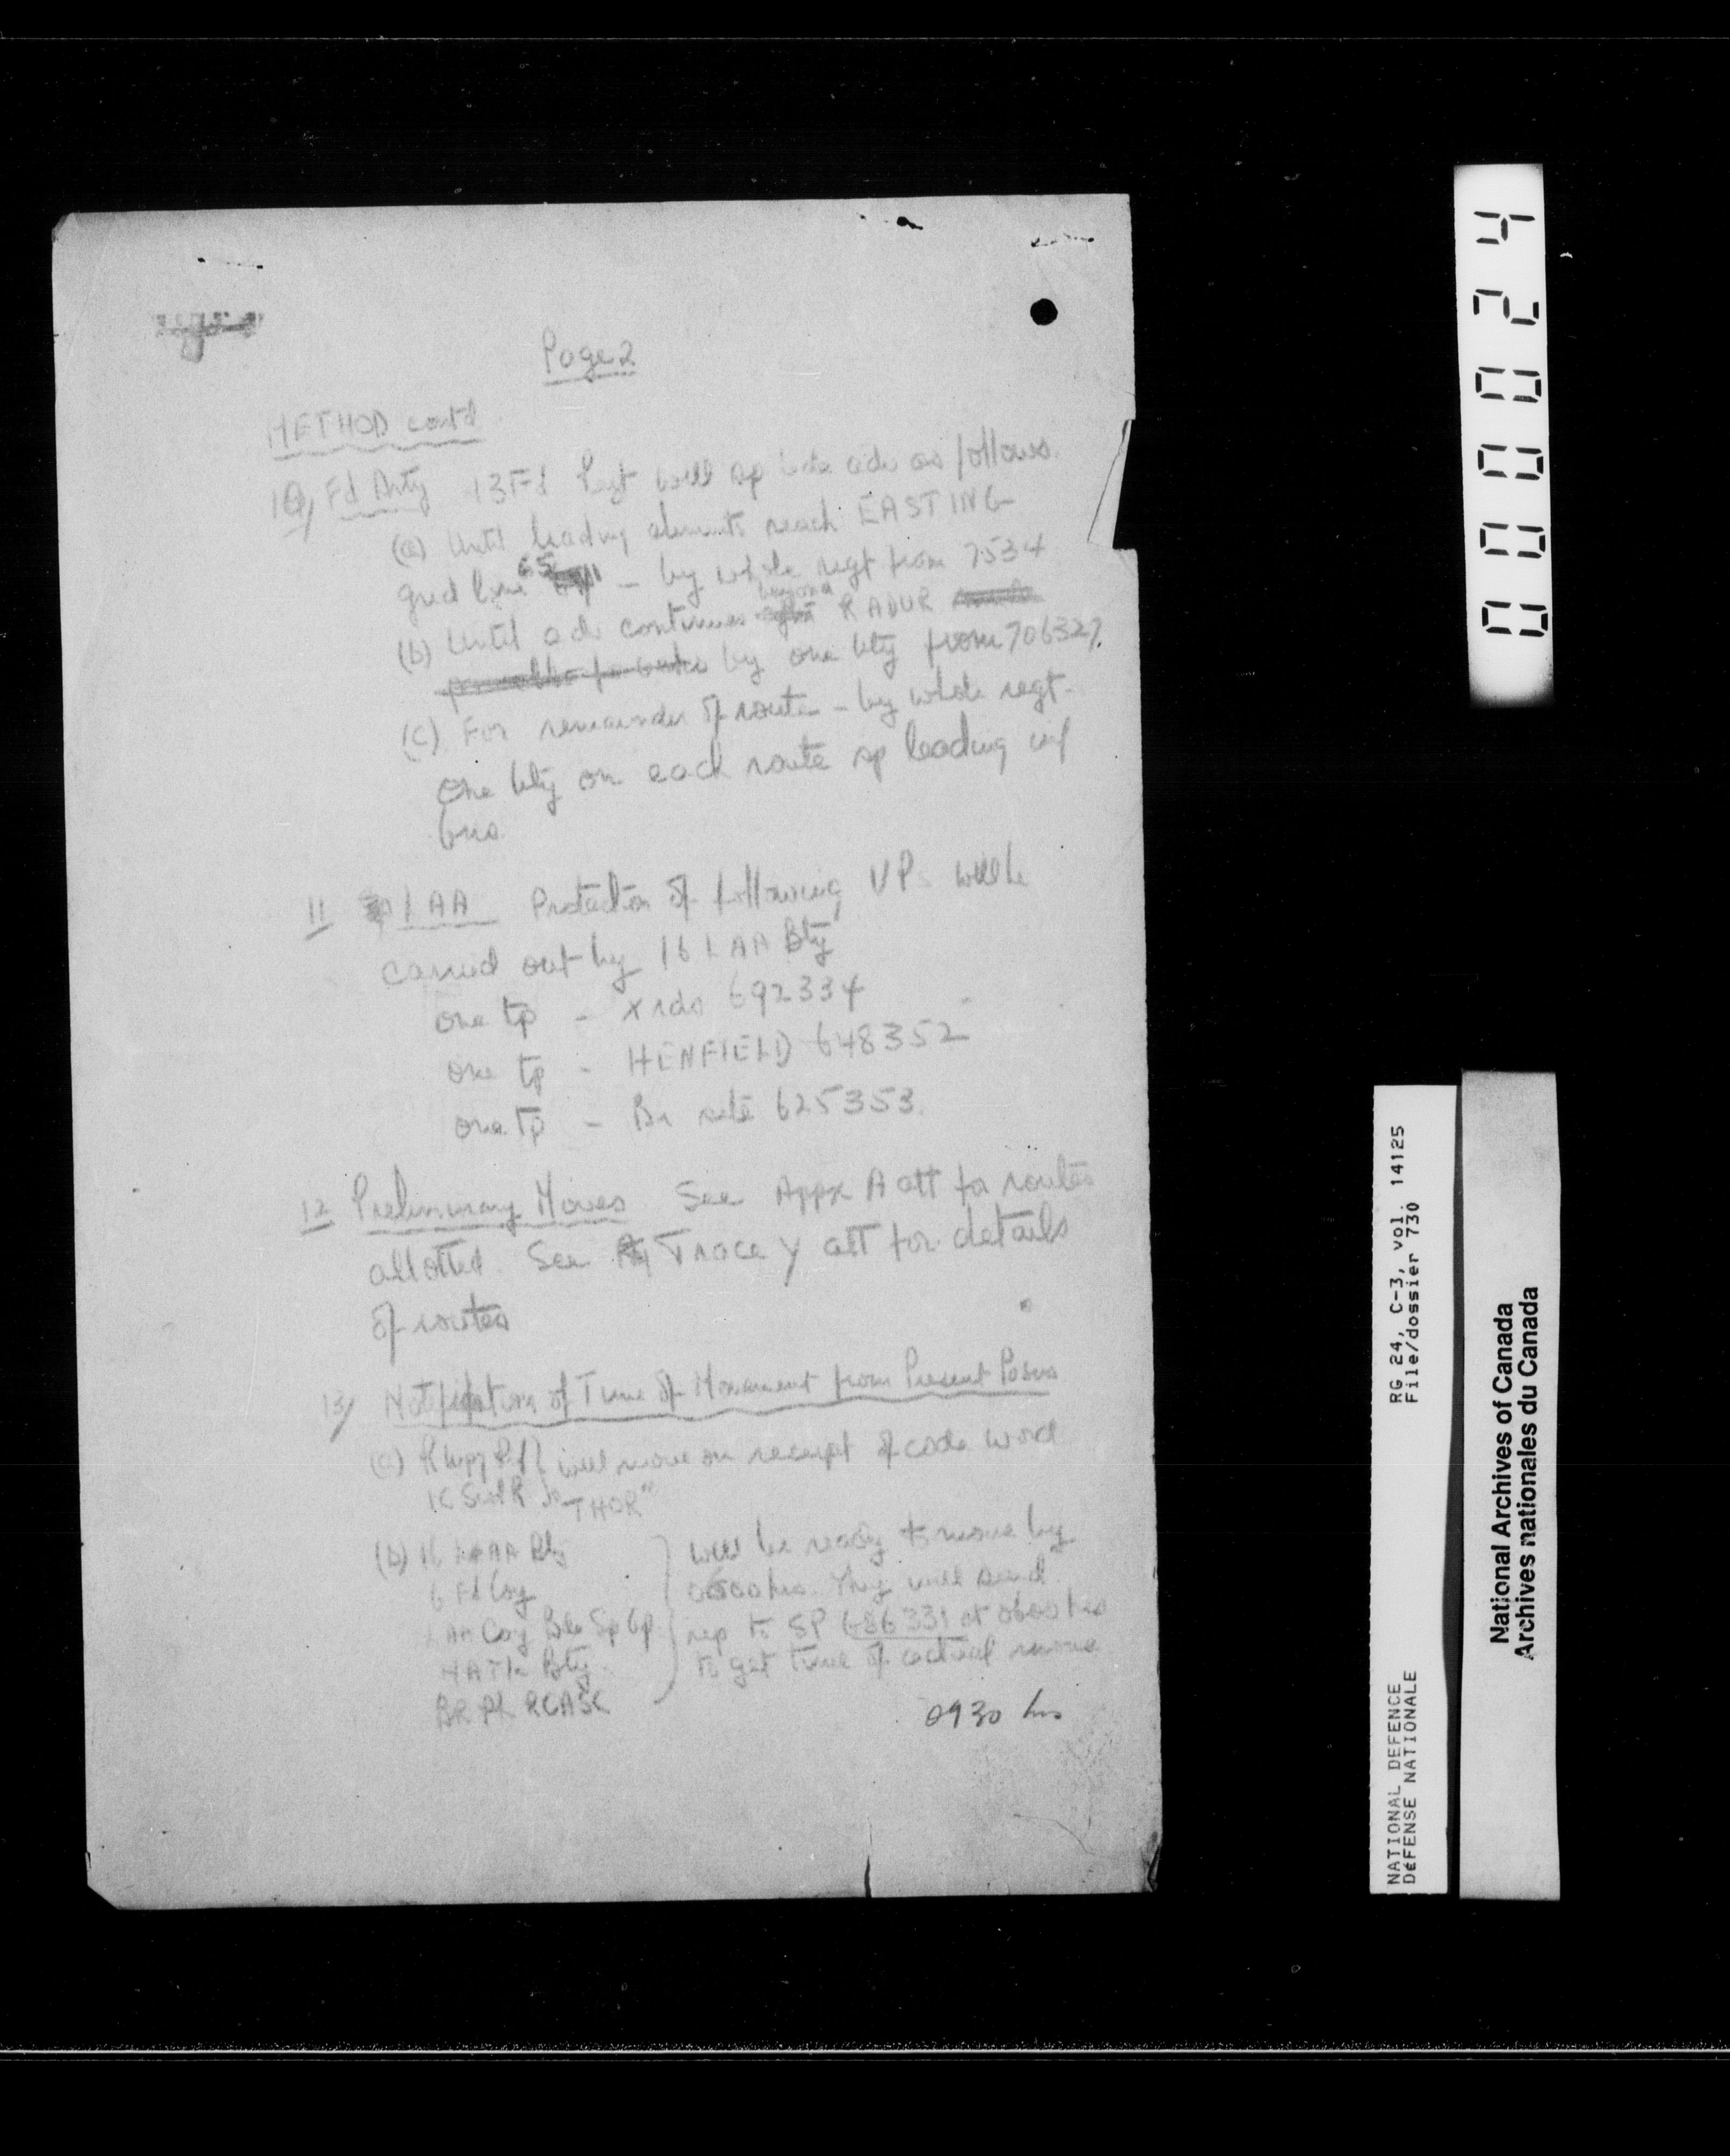 Page 2
METHOD cont'd
10/ Fd Arty 13 Fd Regt will sp bde adv as follows.
(a) Until leading elements reach EASTING
grid line 65 - by whole regt from 7534
(b) Until adv continues beyond RADUR
by one bty from 706327.
(c) For remainder of route - by whole regt.
One bty on each route sp leading inf
bns.
11 LAA Protection of following VPs will be
carried out by 16 LAA Bty
one tp - x rds 692334
one tp - HENFIELD 648352
one tp - Br site 625353.
12 Preliminary Moves See Appx A att for routes
allotted. See Trace Y att for details
of routes
13/ Notification of Time of Movement from Present Posns
(a) R Wpg Rif will move on receipt of code word
1 C Scot R "THOR"
(b) 16 LAA Bty } will be ready to move by
6 Fd Coy hrs. They will send
Coy Bde Sp Gp rep to SP 686331 at 0600 hrs
A Tk Bty to get time of actual move
BR Pl RCASC
0930 hrs
000024
RG 24, C-3, vol. 14125
File/dossier 730
NATIONAL DEFENCE
DéFENSE NATIONALE
National Archives of Canada
Archives nationales du Canada